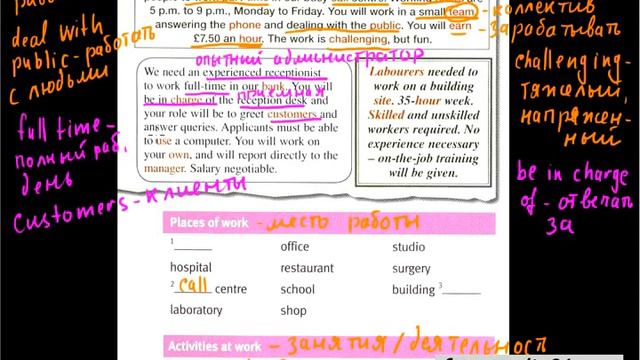 5 p.m. to 9 p.m., Monday to Friday. You will work in a small team,
answering the phone and dealing with the public. You will earn
£7.50 an hour. The work is challenging, but fun.
- коллектив
- зарабатывать
deal with
public - работать
с людьми
full time -
полный раб.
день
customers - клиенты
опытный администратор
We need an experienced receptionist
to work full-time in our bank. You will
be in charge of the reception desk and
приёмная
your role will be to greet customers and
answer queries. Applicants must be able
to use a computer. You will work on
your own, and will report directly to the
manager. Salary negotiable.
Labourers needed
to work on a building
site. 35-hour week.
Skilled and unskilled
workers required. No
experience necessary
– on-the-job training
will be given.
challenging -
тяжелый,
напряжен-
ный
be in charge
of - отвечать
за
Places of work - место работы
1 office studio
hospital restaurant surgery
2 call centre school building 3
laboratory shop
Activities at work - занятия/деятельность